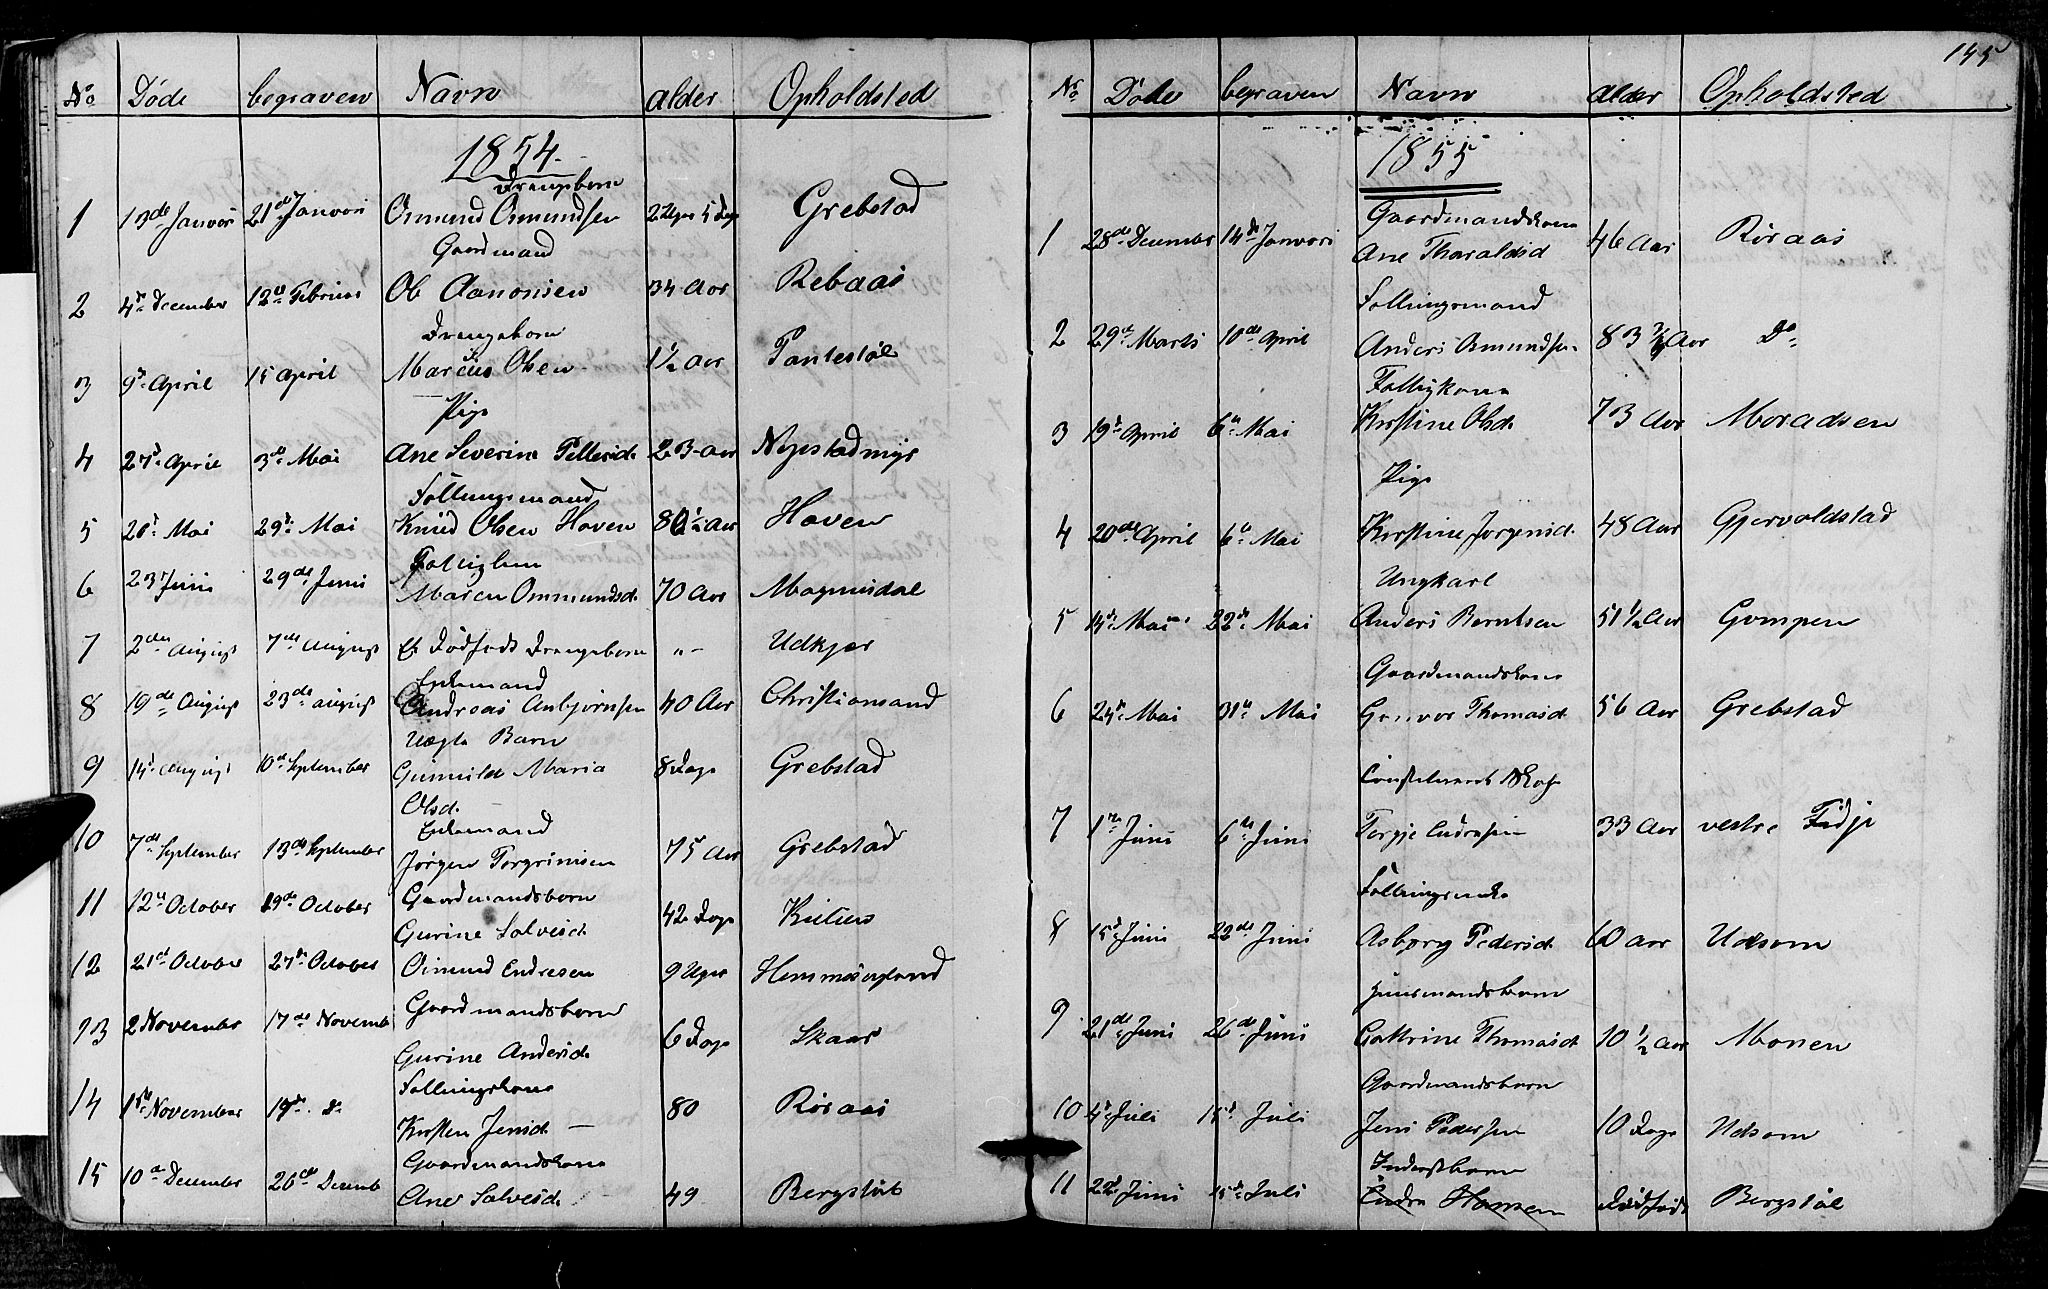 No Døde begraven Navn alder Opholdsted
1854
Drengebarn
1 13de Januari 21de Januari Osmund Osmundsen 22 Uger 5 Dage Grebstad
Gaardmand
2 4de December 12te Februar Ole Aanonsen 34 Aar Rebaas
Drengebarn
3 9de April 15 April Marcus Olsen 1 1/2 Aar Tantestøl
Pige
4 27de April 3de Mai Ane Severine Pettersd. 23 Aar Nyestadmyr
Føllingsmand
5 Mai 29de Mai Knud Olsen Haven Aar Haven
6 23 Juni 29de Juni Maren Ommundsd. 70 Aar Magnusdal
7 2den August 7de August Et Dødfødt Drengebarn "- Udkjær
Enkemand
8 19de August 23de august Andreas Anbjørnsen 40 Aar Christiansand
Uægte Barn
9 14de August 10de September Gunnild Maria 8 Dage Grebstad
Olsd.
Enkemand
10 7de September 13de September Jørgen Torgrimsen 75 Aar Grebstad
Gaardmandsbarn
11 12te October 19de October Gurine Salvesd. 42 Dage
12 21de October 27de October Osmund Endresen 9 Uger
Gaardmandsbarn
13 2 November 17de Novemb Gurine Andersd. 6 Dage Skaar
Føllingskone
14 15de November 19de Do Kirsten Jensd. — 80 Røraas
Gaardmandskone
15 10de December 26de Decemb Ane Salvesd. 49 Bergstøl
145
No Døde begraven Navn alder Opholdsted
1855
Gaardmandskone
1 28de December 14de Januari Ane Tharaldsd 46 Aar Røraas
Føllingsmand
2 29de Marts 10de April Anders Osmundsen 83 Aar Do
3 19de April 6te Mai Kirstine Olsd. 73 Aar Moradsen
Pige
4 20de April 6te Mai Kirstine Jørgensd. 48 Aar Gjervoldstad
Ungkarl
5 14de Mai 22de Mai Anders Berntsen 51 1/2 Aar Gumpen
Gaardmandskone
6 24de Mai 31te Mai Gunvor Thomasd 56 Aar Grebstad
7 1ste Juni 6te Juni Terje Endresen 33 Aar vestre Fidje
8 15de Juni 22de Juni Asborg Pedersd. 60 aar Udsom
Huusmandsbarn
9 21de Juni 26de Juni Cathrine Thomasd. 10 1/2 Aar Monen
Gaardmandsbarn
10 4de Juli 15de Juli Jens Pedersen 10 Dage Udsom
Inderstbarn
11 22de Juni 15de Juli Endre Hansen Dødfødt Bergstøl